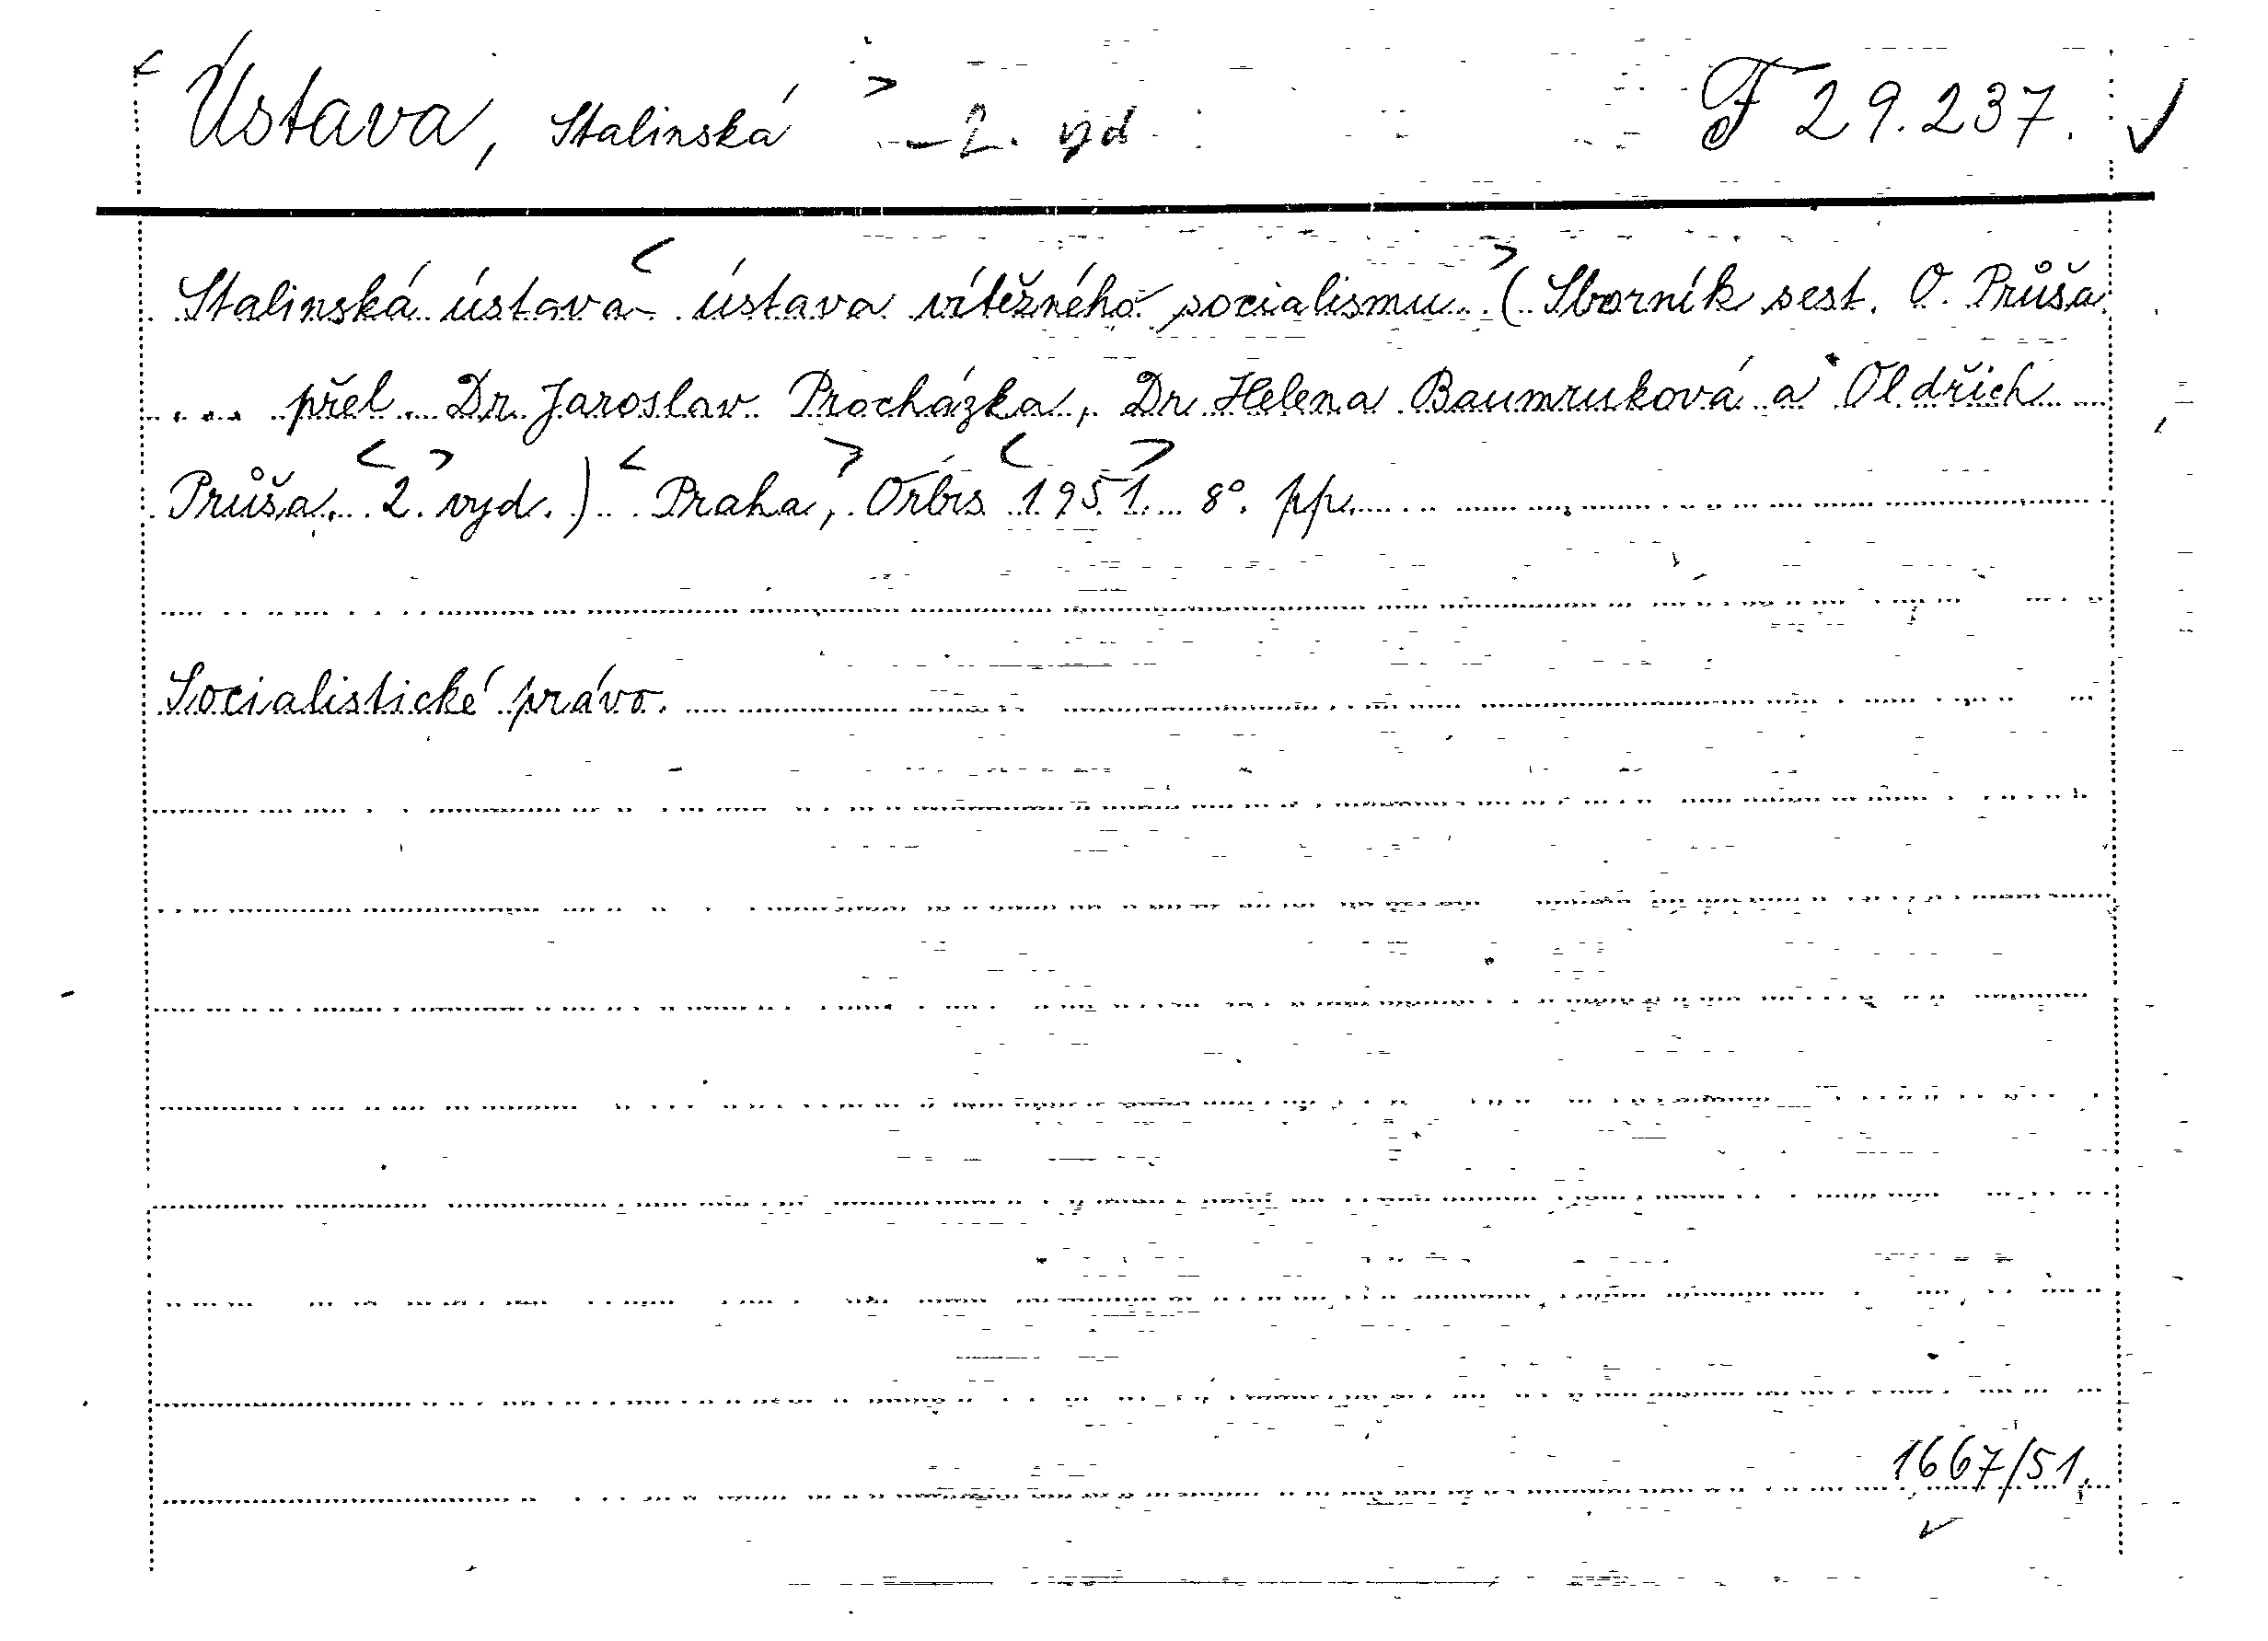 <Ústava, Stalinská> – 2. vyd F 29.237.
Stalinská ústava <- ústava vítězného socialismu.> (Sborník sest. O. Průša
... přel. Dr. Jaroslav Procházka, Dr Helena Baumruková a Oldřich
Průša. <2.> vyd.) <Praha>, Orbis <1951>. 8°. pp.
Socialistické právo.
1667/51.